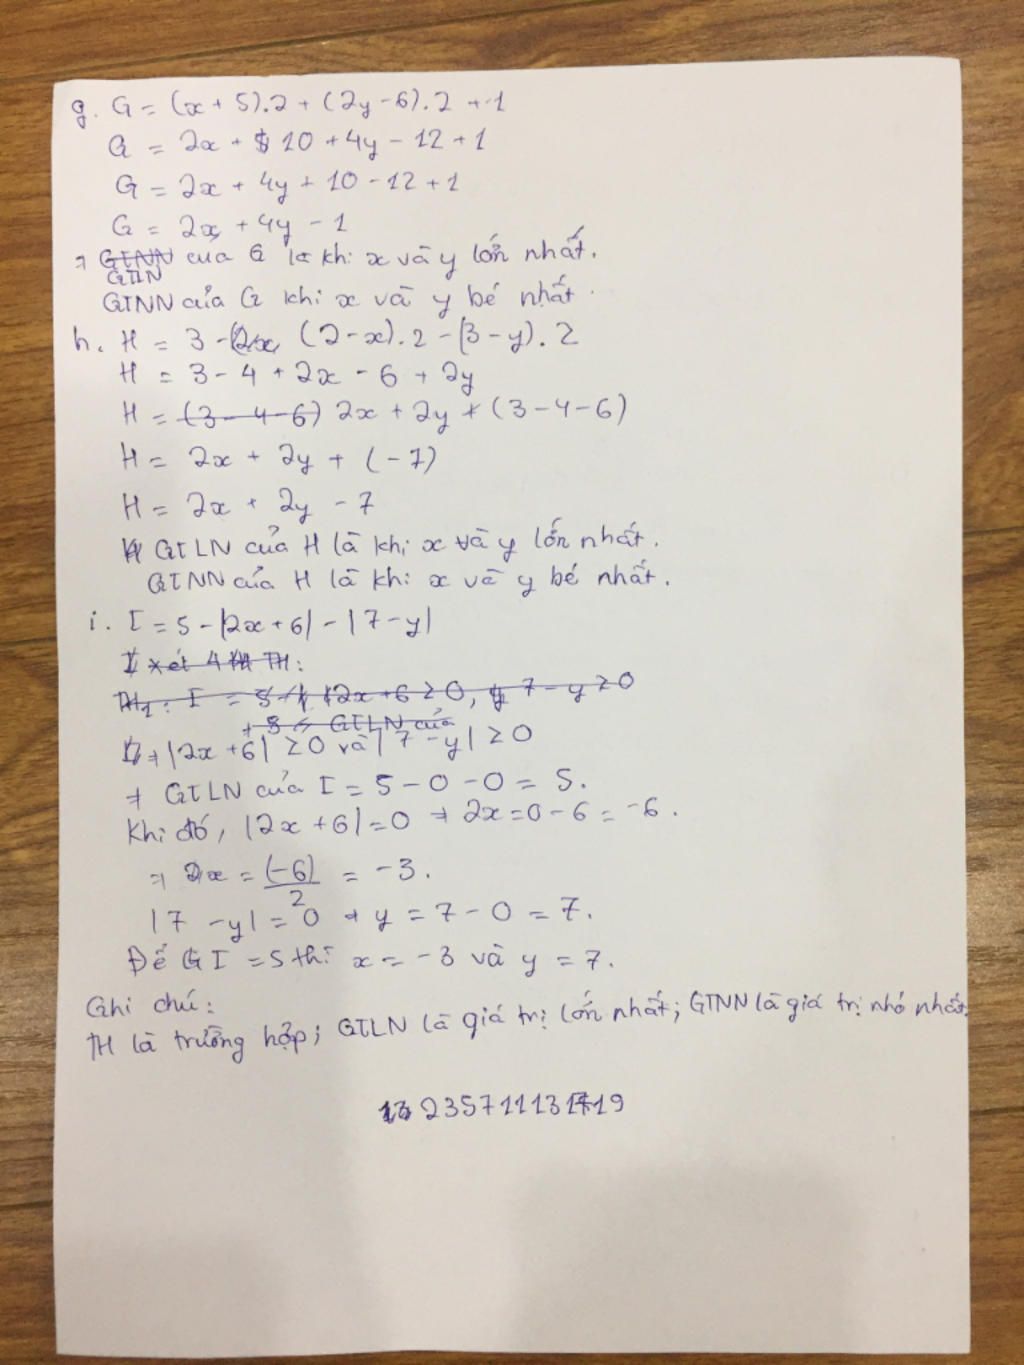 g. G = (x + 5).2 + (2y - 6).2 + 1
G = 2x + 10 + 4y - 12 + 1
G = 2x + 4y + 10 - 12 + 1
G = 2x + 4y - 1
⇒ GTNN của G là khi x và y lớn nhất.
GTLN
GTNN của G khi x và y bé nhất.
h. H = 3 - (2 - x).2 - (3 - y).2
H = 3 - 4 + 2x - 6 + 2y
H = (3 - 4 - 6) 2x + 2y + (3 - 4 - 6)
H = 2x + 2y + (-7)
H = 2x + 2y - 7
GTLN của H là khi x và y lớn nhất.
GTNN của H là khi x và y bé nhất.
i. I = 5 - |2x + 6| - |7 - y|
xét 4 TH:
TH1: I = 5 - 2x + 6 ≥ 0, 7 - y ≥ 0
GTLN của
⇒ |2x + 6| ≥ 0 và |7 - y| ≥ 0
⇒ GTLN của I = 5 - 0 - 0 = 5.
Khi đó, |2x + 6| = 0 ⇒ 2x = 0 - 6 = -6.
⇒ x = (-6)/2 = -3.
|7 - y| = 0 ⇒ y = 7 - 0 = 7.
Để I = 5 thì x = -3 và y = 7.
Ghi chú:
TH là trường hợp; GTLN là giá trị lớn nhất; GTNN là giá trị nhỏ nhất.
235711131719